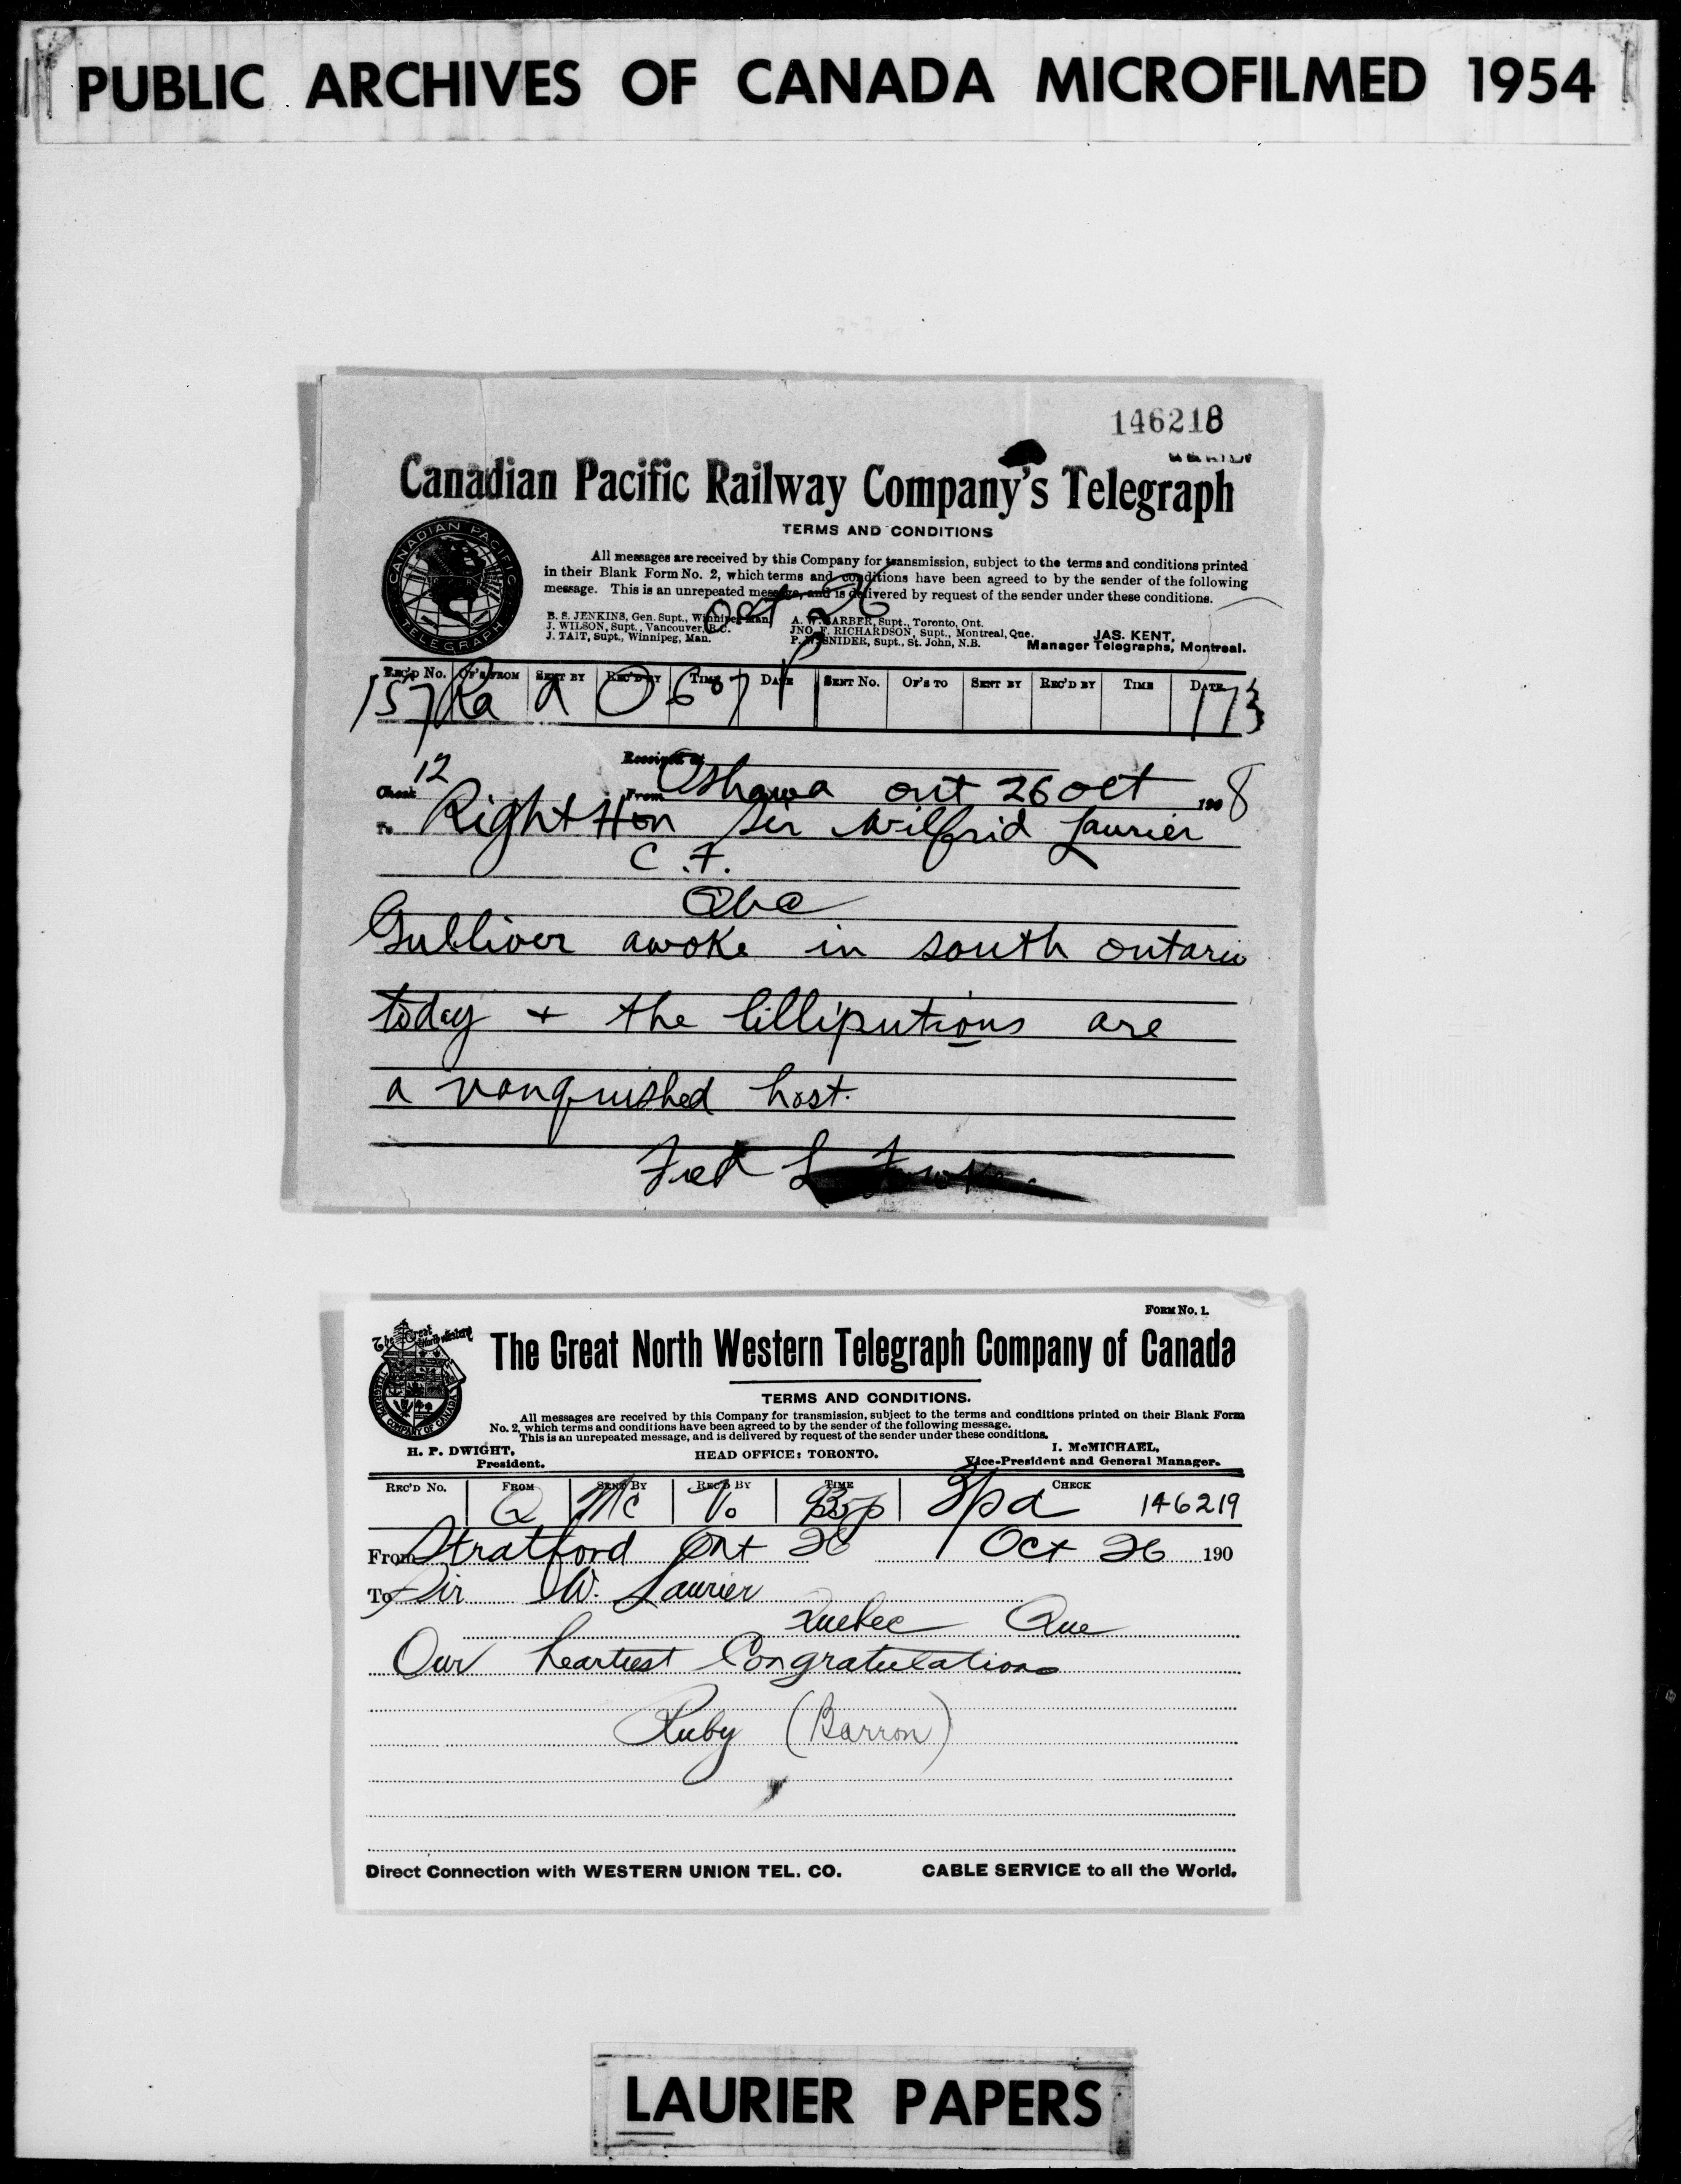 PUBLIC ARCHIVES OF CANADA MICROFILMED 1954
146218
Canadian Pacific Railway Company's Telegraph
TERMS AND CONDITIONS
CANADIAN PACIFIC TELEGRAPH
All messages are received by this Company for transmission, subject to the terms and conditions printed
in their Blank Form No. 2, which terms and conditions have been agreed to by the sender of the following
message. This is an unrepeated message, and is delivered by request of the sender under these conditions.
Oct 26
B. S. JENKINS, Gen. Supt., Winnipeg Man. A. W. BARBER, Supt., Toronto, Ont.
J. WILSON, Supt., Vancouver, B.C. JNO. F. RICHARDSON, Supt., Montreal, Que. JAS. KENT,
J. TAIT, Supt., Winnipeg, Man. P. W. SNIDER, Supt., St. John, N.B. Manager Telegraphs, Montreal.
REC'D No. OF'S FROM SENT BY REC'D BY TIME DATE SENT No. OF'S TO SENT BY REC'D BY TIME DATE
157 Ra a O 607 P 173
12 Received at
Check From Oshawa ont 26 oct 190 8
To Right Hon Sir Wilfrid Laurier
C.F.
Qbc
Gulliver awoke in south ontario
today + the lilliputions are
a vanquished host.
Fred L Fowke.
FORM No. 1.
The Great North Western
TELEGRAPH COMPANY OF CANADA
The Great North Western Telegraph Company of Canada
TERMS AND CONDITIONS.
All messages are received by this Company for transmission, subject to the terms and conditions printed on their Blank Form
No. 2, which terms and conditions have been agreed to by the sender of the following message.
This is an unrepeated message, and is delivered by request of the sender under these conditions.
H. P. DWIGHT, President. HEAD OFFICE: TORONTO. I. McMICHAEL, Vice-President and General Manager.
REC'D No. FROM SENT BY REC'D BY TIME CHECK
Q Mc Vo 3pd 146219
From Stratford Ont 26 Oct 26 190
To Sir W. Laurier
Quebec Que
Our heartiest Congratulations
Ruby (Barron)
Direct Connection with WESTERN UNION TEL. CO. CABLE SERVICE to all the World.
LAURIER PAPERS